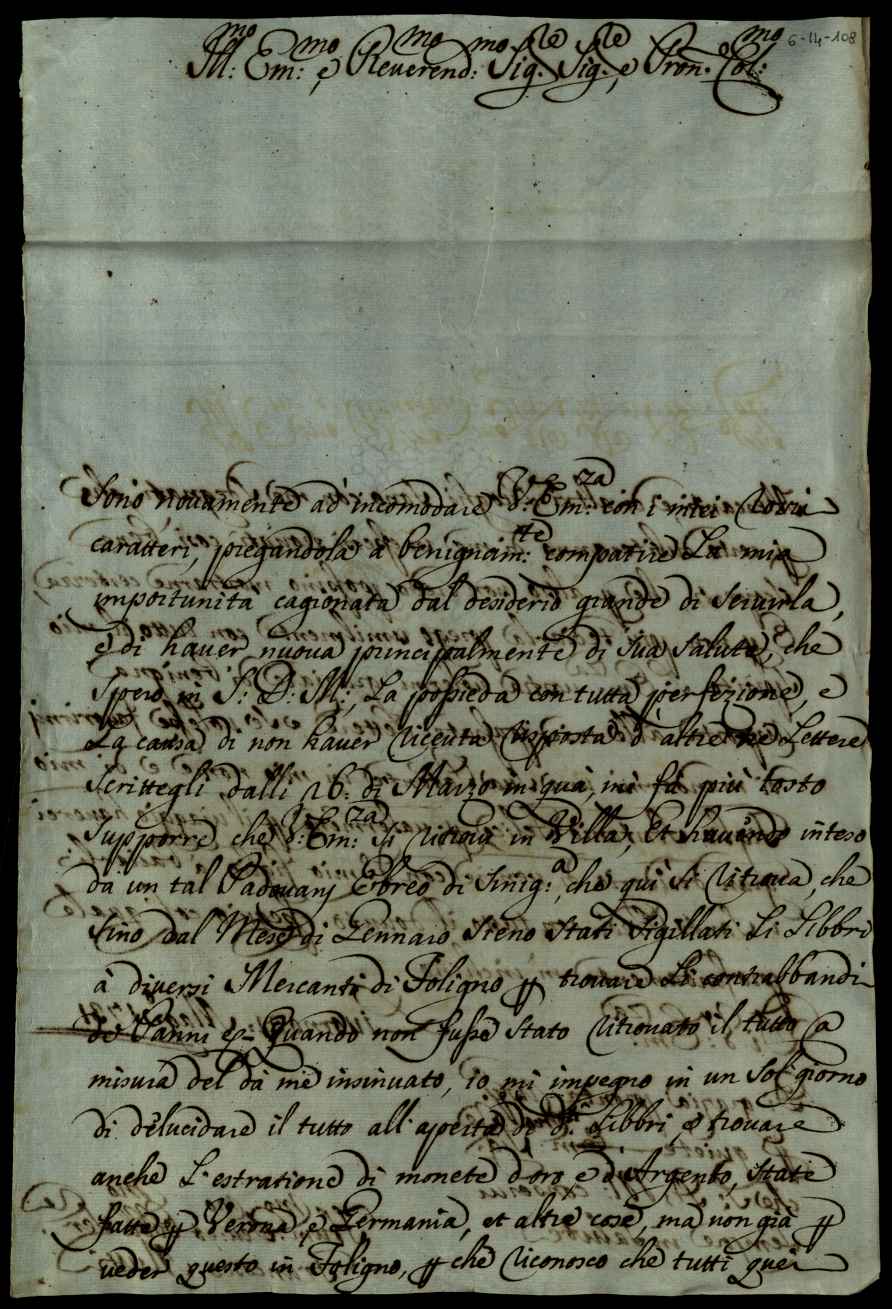 6-14-108
Ill:mo Em:mo e Reverend:mo Sig:le Sig:le e Pron: Col:mo
Sono novamente ad' incomodare V: Em:za con i miei rozzi
caratteri, pregandola à benignam:te compatire La mia
importunità cagionata dal desiderio grande di Servirla,
e di haver nuova principalmente di Sua Salute, che
Spero in S: D: M:, La possieda con tutta perfezione, e
La causa di non haver ricevuta risposta d'altre Lettere
Scrittegli dalli 26: di Marzo in quà, mi fà più tosto
Supporre che V: Em:za Si ritrova in Villa, Et havendo inteso
da un tal Padovanj Ebreo di Sinig:a, che quì Si ritrova, che
Sino dal Mese di Gennaro Sieno Stati Sigillati Li Libbri
à diversi Mercanti di Foligno p trovare Li contrabbandi
de Panni Quando non fusse Stato ritrovato il tutto a
misura del da me insinuato, io mi impegno in un Sol giorno
di délucidare il tutto all' aperta di d:ti Libbri, e trovare
anche L'estratione di monete d'oro e d'Argento, State
fatte p Verona, e Germania, et altre cose, ma non già p
veder questo in Foligno, p che riconosco che tutti quei